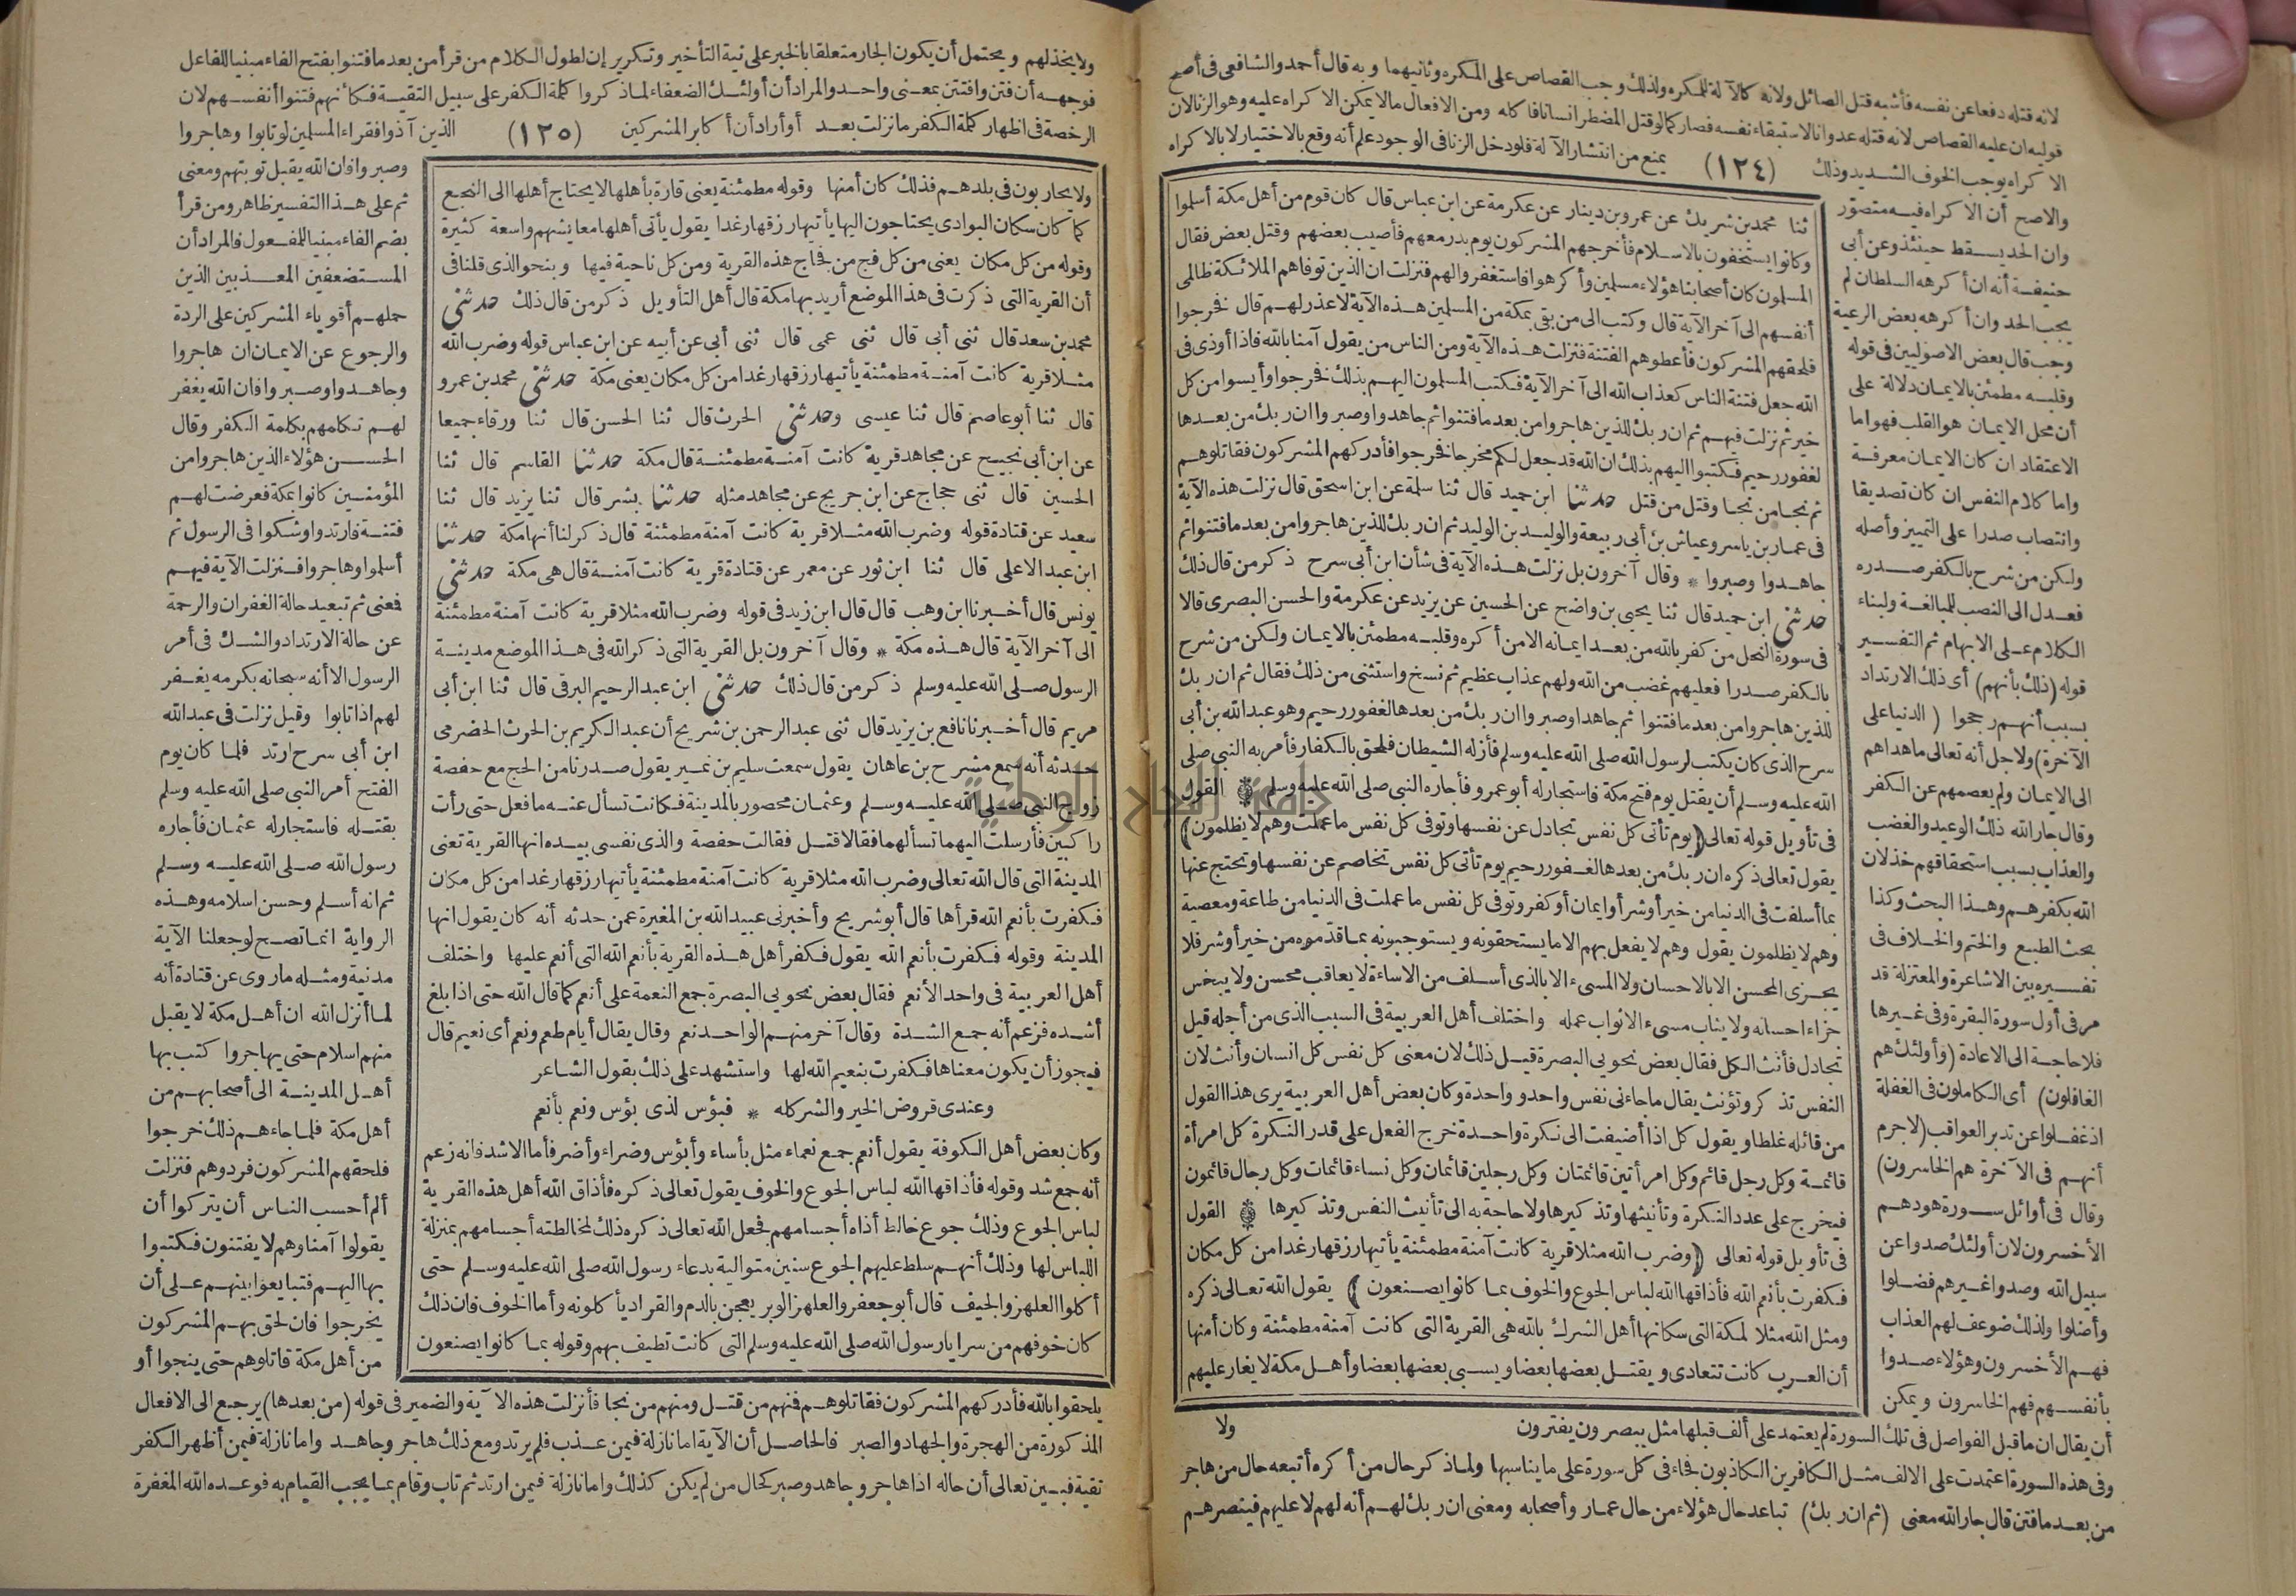 لانه قتله دفعا عن نفسه فأشبه قتل الصائل ولانه كالآلة للمكره ولذلك وجب القصاص على المكره وثانيهما وبه قال أحمد والشافعى فى أصح
قوليه ان عليه القصاص لانه قتله عدوانا لاستبقاء نفسه فصار كما لو قتل المضطر انسانا فأكله ومن الافعال ما لا يمكن الاكراه عليه وهو الزنا لان
الاكراه يوجب الخوف الشديد وذلك (١٢٤) يمنع من انتشار الآلة فلو دخل الزنا فى الوجود علم أنه وقع بالاختيار لا بالاكراه
والاصح أن الاكراه فيه متصوّر
وان الحد يسقط حينئذ وعن أبى
حنيفة أنه ان أكرهه السلطان لم
يجب الحد وان أكرهه بعض الرعية
وجب قال بعض الاصوليين فى قوله
وقلبه مطمئن بالايمان دلالة على
أن محل الايمان هو القلب فهو اما
الاعتقاد ان كان الايمان معرفة
واما كلام النفس ان كان تصديقا
وانتصاب صدرا على التمييز وأصله
ولكن من شرح بالكفر صدره
فعدل الى النصب للمبالغة ولبناء
الكلام على الابهام ثم التفسير
قوله (ذلك بأنهم) أى ذلك الارتداد
بسبب أنهم رجحوا (الدنيا على
الآخرة) ولاجل أنه تعالى ما هداهم
الى الايمان ولم يعصمهم عن الكفر
وقال جار الله ذلك الوعيد والغضب
والعذاب بسبب استحقاقهم خذلان
الله بكفرهم وهذا البحث وكذا
بحث الطبع والختم والخلاف فى
تفسيره بين الاشاعرة والمعتزلة قد
مر فى أول سورة البقرة وفى غيرها
فلا حاجة الى الاعادة (وأولئك هم
الغافلون) أى الكاملون فى الغفلة
اذ غفلوا عن تدبر العواقب (لا جرم
أنهم فى الآخرة هم الخاسرون)
وقال فى أوائل سورة هود هم
الأخسرون لان أولئك صدوا عن
سبيل الله وصدوا غيرهم فضلوا
وأضلوا ولذلك ضوعف لهم العذاب
فهم الأخسرون وهؤلاء صدوا
بأنفسهم فهم الخاسرون ويمكن
ثنا محمد بن شريك عن عمرو بن دينار عن عكرمة عن ابن عباس قال كان قوم من أهل مكة أسلموا
وكانوا يستخفون بالاسلام فأخرجهم المشركون يوم بدر معهم فأصيب بعضهم وقتل بعض فقال
المسلمون كان أصحابنا هؤلاء مسلمين وأكرهوا فاستغفروا لهم فنزلت ان الذين توفاهم الملائكة ظالمى
أنفسهم الى آخر الآية قال وكتب الى من بقى بمكة من المسلمين هذه الآية لا عذر لهم قال فخرجوا
فلحقهم المشركون فأعطوهم الفتنة فنزلت هذه الآية ومن الناس من يقول آمنا بالله فاذا أوذى فى
الله جعل فتنة الناس كعذاب الله الى آخر الآية فكتب المسلمون اليهم بذلك فخرجوا وأيسوا من كل
خير ثم نزلت فيهم ثم ان ربك للذين هاجروا من بعد ما فتنوا ثم جاهدوا وصبروا ان ربك من بعدها
لغفور رحيم فكتبوا اليهم بذلك ان الله قد جعل لكم مخرجا فخرجوا فأدركهم المشركون فقاتلوهم
ثم نجا من نجا وقتل من قتل حدثنا ابن حميد قال ثنا سلمة عن ابن اسحق قال نزلت هذه الآية
فى عمار بن ياسر وعياش بن أبى ربيعة والوليد بن الوليد ثم ان ربك للذين هاجروا من بعد ما فتنوا ثم
جاهدوا وصبروا * وقال آخرون بل نزلت هذه الآية فى شأن ابن أبى سرح ذكر من قال ذلك
حدثنى ابن حميد قال ثنا يحيى بن واضح عن الحسين عن يزيد عن عكرمة والحسن البصرى قالا
فى سورة النحل من كفر بالله من بعد ايمانه الا من أكره وقلبه مطمئن بالايمان ولكن من شرح
بالكفر صدرا فعليهم غضب من الله ولهم عذاب عظيم ثم نسخ واستثنى من ذلك فقال ثم ان ربك
للذين هاجروا من بعد ما فتنوا ثم جاهدوا وصبروا ان ربك من بعدها لغفور رحيم وهو عبد الله بن أبى
سرح الذى كان يكتب لرسول الله صلى الله عليه وسلم فأزله الشيطان فلحق بالكفار فأمر به النبى صلى
الله عليه وسلم أن يقتل يوم فتح مكة فاستجار له أبو عمرو فأجاره النبى صلى الله عليه وسلم القول
فى تأويل قوله تعالى (يوم تأتى كل نفس تجادل عن نفسها وتوفى كل نفس ما عملت وهم لا يظلمون)
يقول تعالى ذكره ان ربك من بعدها لغفور رحيم يوم تأتى كل نفس تخاصم عن نفسها وتحتج عنها
بما أسلفت فى الدنيا من خير أو شر أو ايمان أو كفر وتوفى كل نفس ما عملت فى الدنيا من طاعة ومعصية
وهم لا يظلمون يقول وهم لا يفعل بهم الا ما يستحقونه ويستوجبونه بما قدّموه من خير أو شر فلا
يجزى المحسن الا بالاحسان ولا المسىء الا بالذى أسلف من الاساءة لا يعاقب محسن ولا يبخس
جزاء احسانه ولا يثاب مسىء الا ثواب عمله واختلف أهل العربية فى السبب الذى من أجله قيل
تجادل فأنث الكل فقال بعض نحويى البصرة قيل ذلك لان معنى كل نفس كل انسان وأنث لان
النفس تذكر وتؤنث يقال ما جاءنى نفس واحد وواحدة وكان بعض أهل العربية يرى هذا القول
من قائله غلطا ويقول كل اذا أضيفت الى نكرة واحدة خرج الفعل على قدر النكرة كل امرأة
قائمة وكل رجل قائم وكل امرأتين قائمتان وكل رجلين قائمان وكل نساء قائمات وكل رجال قائمون
فيخرج على عدد النكرة وتأنيثها وتذكيرها ولا حاجة به الى تأنيث النفس وتذكيرها القول
فى تأويل قوله تعالى (وضرب الله مثلا قرية كانت آمنة مطمئنة يأتيها رزقها رغدا من كل مكان
فكفرت بأنعم الله فأذاقها الله لباس الجوع والخوف بما كانوا يصنعون) يقول الله تعالى ذكره
ومثل الله مثلا لمكة التى سكانها أهل الشرك بالله هى القرية التى كانت آمنة مطمئنة وكان أمنها
أن العرب كانت تتعادى ويقتل بعضها بعضا ويسبى بعضها بعضا وأهل مكة لا يغار عليهم
أن يقال ان ما قبل الفواصل فى تلك السورة لم يعتمد على ألف قبلها مثل يبصرون يفترون ولا
وفى هذه السورة اعتمدت على الالف مثل الكافرين الكاذبون فجاء فى كل سورة على ما يناسبها ولما ذكر حال من أكره أتبعه حال من هاجر
من بعد ما فتن قال جار الله معنى (ثم ان ربك) تباعد حال هؤلاء من حال عمار وأصحابه ومعنى ان ربك لهم أنه لهم لا عليهم فينصرهم
ولا يخذلهم ويحتمل أن يكون الجار متعلقا بالخبر على نية التأخير وتكرير ان لطول الكلام من قرأ من بعد ما فتنوا بفتح الفاء مبنيا للفاعل
فوجهه أن فتن وافتتن بمعنى واحد والمراد أن أولئك الضعفاء لما ذكروا كلمة الكفر على سبيل التقية فكأنهم فتنوا أنفسهم لان
الرخصة فى اظهار كلمة الكفر ما نزلت بعد أو أراد أن أكابر المشركين (١٢٥) الذين آذوا فقراء المسلمين لو تابوا وهاجروا
ولا يحاربون فى بلدهم فذلك كان أمنها وقوله مطمئنة يعنى قارة بأهلها لا يحتاج أهلها الى النجع
كما كان سكان البوادى يحتاجون اليها يأتيها رزقها رغدا يقول يأتى أهلها معايشهم واسعة كثيرة
وقوله من كل مكان يعنى من كل فج من فجاج هذه القرية ومن كل ناحية فيها وبنحو الذى قلنا فى
أن القرية التى ذكرت فى هذا الموضع أريد بها مكة قال أهل التأويل ذكر من قال ذلك حدثنى
محمد بن سعد قال ثنى أبى قال ثنى عمى قال ثنى أبى عن أبيه عن ابن عباس قوله وضرب الله
مثلا قرية كانت آمنة مطمئنة يأتيها رزقها رغدا من كل مكان يعنى مكة حدثنى محمد بن عمرو
قال ثنا أبو عاصم قال ثنا عيسى وحدثنى الحرث قال ثنا الحسن قال ثنا ورقاء جميعا
عن ابن أبى نجيح عن مجاهد قرية كانت آمنة مطمئنة قال مكة حدثنا القاسم قال ثنا
الحسين قال ثنى حجاج عن ابن جريج عن مجاهد مثله حدثنا بشر قال ثنا يزيد قال ثنا
سعيد عن قتادة قوله وضرب الله مثلا قرية كانت آمنة مطمئنة قال ذكر لنا أنها مكة حدثنا
ابن عبد الاعلى قال ثنا ابن ثور عن معمر عن قتادة قرية كانت آمنة قال هى مكة حدثنى
يونس قال أخبرنا ابن وهب قال قال ابن زيد فى قوله وضرب الله مثلا قرية كانت آمنة مطمئنة
الى آخر الآية قال هذه مكة * وقال آخرون بل القرية التى ذكر الله فى هذا الموضع مدينة
الرسول صلى الله عليه وسلم ذكر من قال ذلك حدثنى ابن عبد الرحيم البرقى قال ثنا ابن أبى
مريم قال أخبرنا نافع بن يزيد قال ثنى عبد الرحمن بن شريح أن عبد الكريم بن الحرث الحضرمى
حدثه أنه سمع مشرح بن عاهان يقول سمعت سليم بن نمير يقول صدرنا من الحج مع حفصة
زوج النبى صلى الله عليه وسلم وعثمان محصور بالمدينة فكانت تسأل عنه ما فعل حتى رأت
راكبين فأرسلت اليهما تسألهما فقالا قتل فقالت حفصة والذى نفسى بيده انها القرية تعنى
المدينة التى قال الله تعالى وضرب الله مثلا قرية كانت آمنة مطمئنة يأتيها رزقها رغدا من كل مكان
فكفرت بأنعم الله قرأها قال أبو شريح وأخبرنى عبيد الله بن المغيرة عمن حدثه أنه كان يقول انها
المدينة وقوله فكفرت بأنعم الله يقول فكفر أهل هذه القرية بأنعم الله التى أنعم عليها واختلف
أهل العربية فى واحد الأنعم فقال بعض نحويى البصرة جمع النعمة على أنعم كما قال الله حتى اذا بلغ
أشده فزعم أنه جمع الشدة وقال آخر منهم الواحد نعم وقال يقال أيام طعم ونعم أى نعيم قال
فيجوز أن يكون معناها فكفرت بنعيم الله لها واستشهد على ذلك بقول الشاعر
وعندى قروض الخير والشر كله * فبؤس لذى بؤس ونعم بأنعم
وكان بعض أهل الكوفة يقول أنعم جمع نعماء مثل بأساء وأبؤس وضراء وأضر فأما الاشد فانه زعم
أنه جمع شد وقوله فأذاقها الله لباس الجوع والخوف يقول تعالى ذكره فأذاق الله أهل هذه القرية
لباس الجوع وذلك جوع خالط أذاه أجسامهم فجعل الله تعالى ذكره ذلك لمخالطته أجسامهم بمنزلة
اللباس لها وذلك أنهم سلط عليهم الجوع سنين متوالية بدعاء رسول الله صلى الله عليه وسلم حتى
أكلوا العلهز والجيف قال أبو جعفر والعلهز الوبر يعجن بالدم والقراد يأكلونه وأما الخوف فان ذلك
كان خوفهم من سرايا رسول الله صلى الله عليه وسلم التى كانت تطيف بهم وقوله بما كانوا يصنعون
وصبروا فان الله يقبل توبتهم ومعنى
ثم على هذا التفسير ظاهر ومن قرأ
بضم الفاء مبنيا للمفعول فالمراد أن
المستضعفين المعذبين الذين
حملهم أقوياء المشركين على الردة
والرجوع عن الايمان ان هاجروا
وجاهدوا وصبروا فان الله يغفر
لهم تكلمهم بكلمة الكفر وقال
الحسن هؤلاء الذين هاجروا من
المؤمنين كانوا بمكة فعرضت لهم
فتنة فارتدوا وشكوا فى الرسول ثم
أسلموا وهاجروا فنزلت الآية فيهم
فعنى ثم تبعيد حالة الغفران والرحمة
عن حالة الارتداد والشك فى أمر
الرسول الا أنه سبحانه بكرمه يغفر
لهم اذا تابوا وقيل نزلت فى عبد الله
ابن أبى سرح ارتد فلما كان يوم
الفتح أمر النبى صلى الله عليه وسلم
بقتله فاستجار له عثمان فأجاره
رسول الله صلى الله عليه وسلم
ثم انه أسلم وحسن اسلامه وهذه
الرواية انما تصح لو جعلنا الآية
مدنية ومثله ما روى عن قتادة أنه
لما أنزل الله ان أهل مكة لا يقبل
منهم اسلام حتى يهاجروا كتب بها
أهل المدينة الى أصحابهم من
أهل مكة فلما جاءهم ذلك خرجوا
فلحقهم المشركون فردوهم فنزلت
ألم أحسب الناس أن يتركوا أن
يقولوا آمنا وهم لا يفتنون فكتبوا
بها اليهم فتبايعوا بينهم على أن
يخرجوا فان لحق بهم المشركون
من أهل مكة قاتلوهم حتى ينجوا أو
يلحقوا بالله فأدركهم المشركون فقاتلوهم فمنهم من قتل ومنهم من نجا فأنزلت هذه الآية والضمير فى قوله (من بعدها) يرجع الى الافعال
المذكورة من الهجرة والجهاد والصبر فالحاصل أن الآية اما نازلة فيمن عذب فلم يرتد ومع ذلك هاجر وجاهد واما نازلة فيمن أظهر الكفر
تقية فبين تعالى أن حاله اذا هاجر وجاهد وصبر كحال من لم يكن كذلك واما نازلة فيمن ارتد ثم تاب وقام بما يجب القيام به فوعده الله المغفرة
جامعة النجاح الوطنية